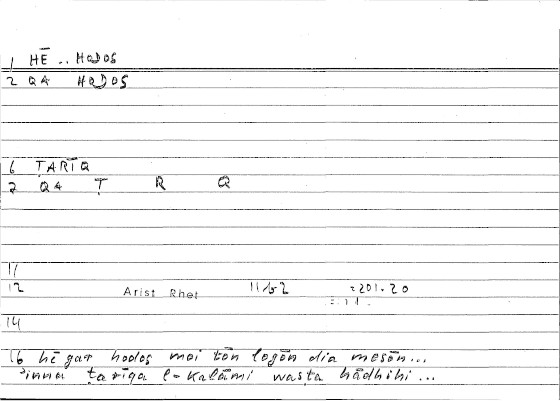 1 HĒ .. HODOS
2 QA HODOS
6 ṬARĪQ
7 QA Ṭ R Q
11
12 Arist Rhet 201.20
14
16 hē gar hodos moi tōn logōn dia mesōn...
ʾinna ṭarīqa l-kalāmi wasṭa hādhihi ...